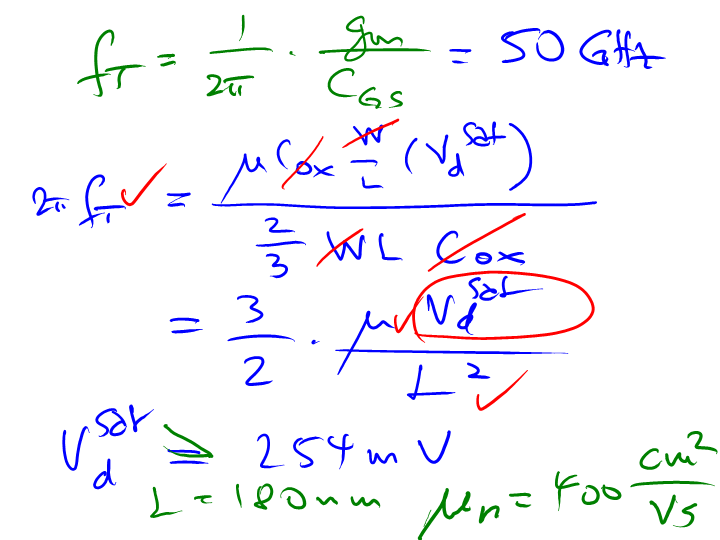 f_T = 1/2π · gm/C_GS = 50 GHz
2π f_T ✓ = μ Cox W/L (V_d^sat) / 2/3 W L Cox
= 3/2 · μ ✓ V_d^sat / L² ✓
V_d^sat ≥ 254 mV
L = 180 nm μ_n = 400 cm²/Vs